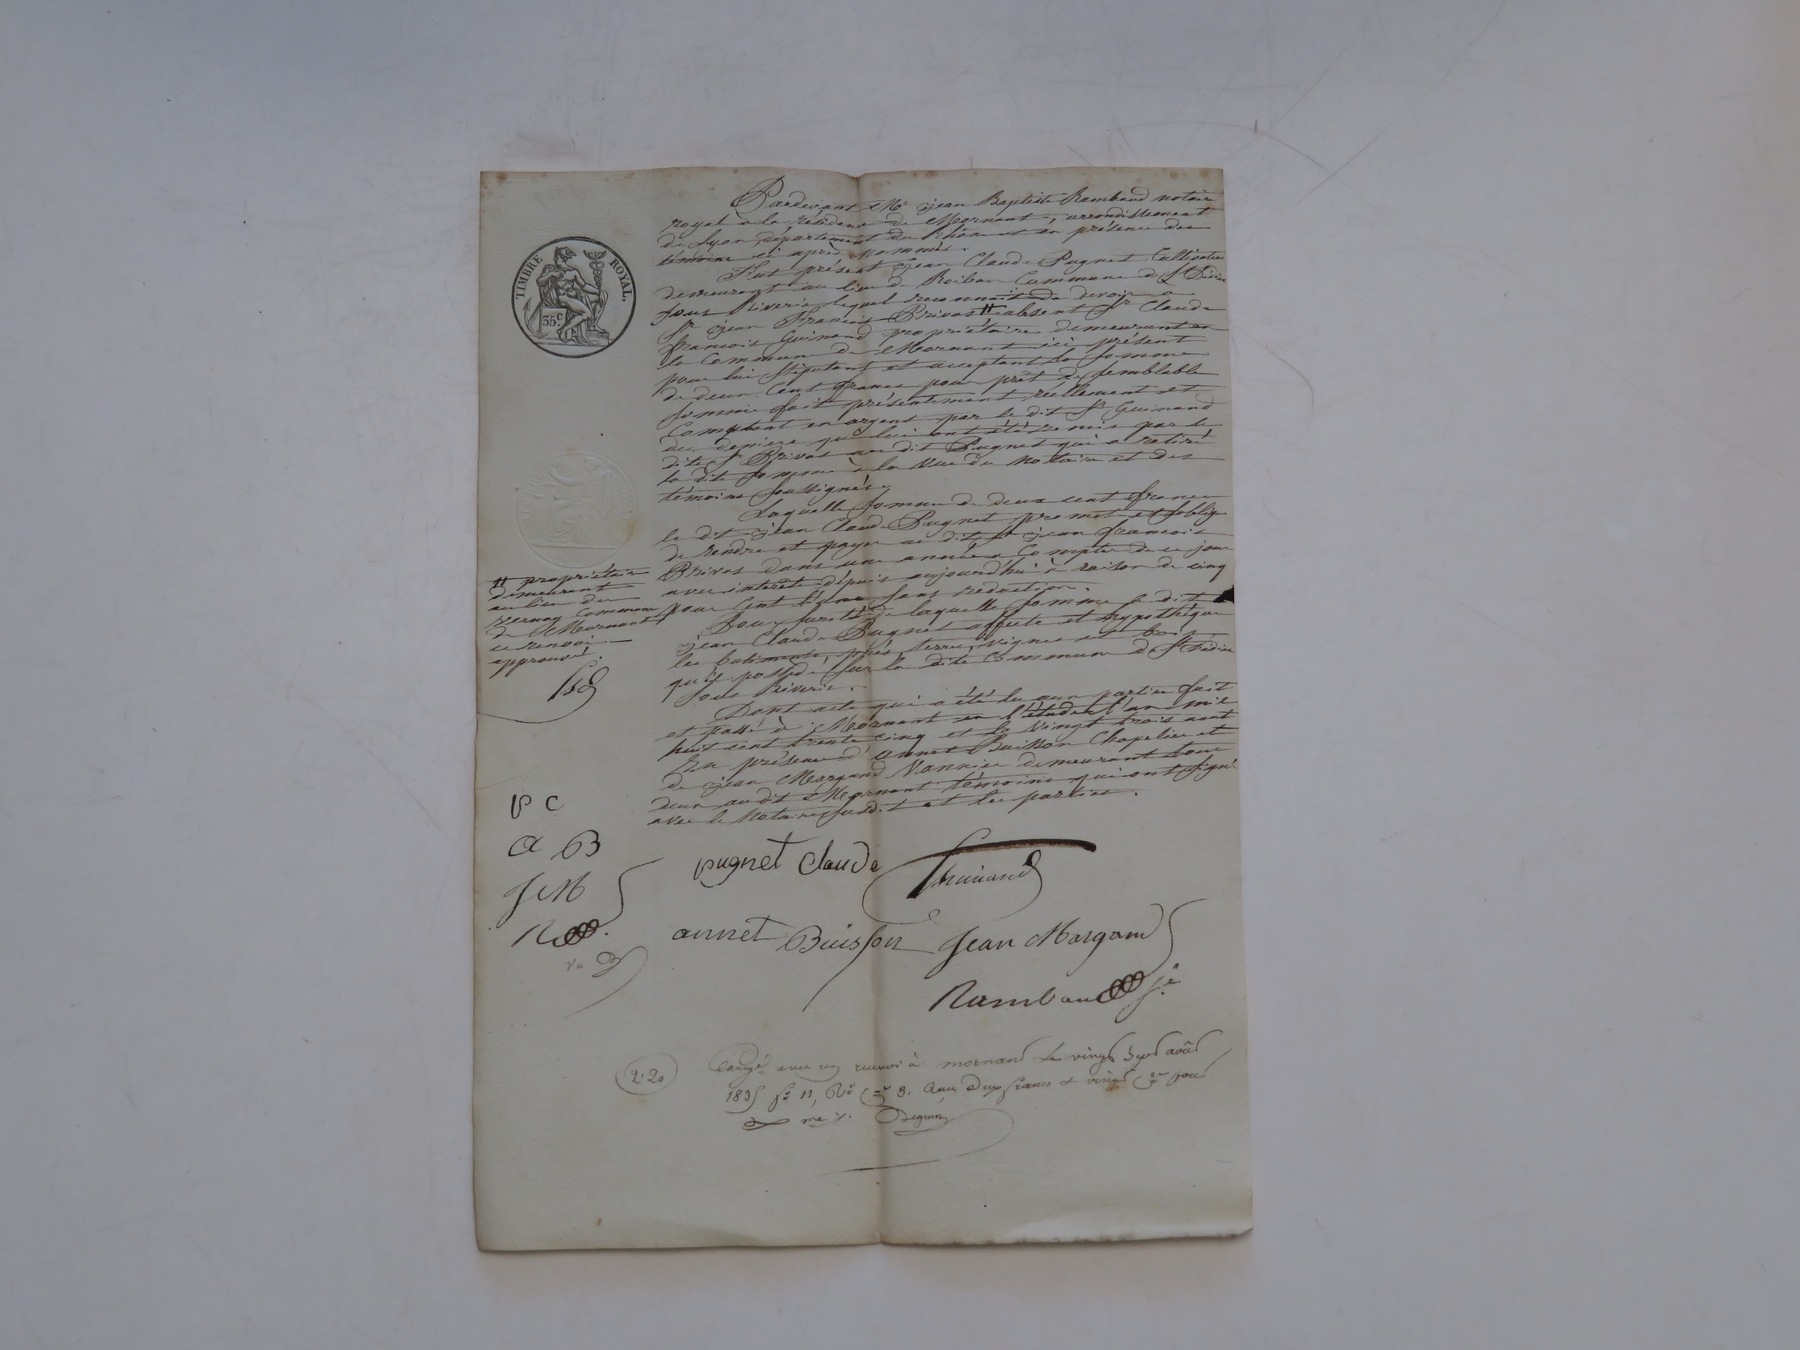 Pardevant Me jean Baptiste Rambaud notaire
royal a la residence de Mornant, arrondissement
de Lyon département du Rhône et en présence des
témoins ci après nommés.
Fut présent jean Claude Pugnet Cultivateur
demeurant au lieu de Commune de St Didier
sous Riverie, lequel reconnait de devoir a
Sr jean François Privas # absent Sr Claude
françois Guinand propriétaire demeurant en
la Commune de Mornant ici présent
pour lui stipulant et acceptant la somme
de deux Cent francs pour prêt de semblable
somme fait présentement réellement et
Comptant en argent par le dit Sr Guinand
des deniers qui lui ont été remis par le
dit Sr Privas au dit Pugnet qui a retiré
la dite somme à la vue du Notaire et des
témoins soussignés.
Laquelle somme de deux cent francs
le dit jean Claude Pugnet promet et s'oblige
de rendre et payer au dit Sr jean françois
Privas dans une année a Compter de ce jour
avec intérêt depuis aujourd'hui à raison de cinq
pour Cent l'an sans reduction.
Pour sureté de laquelle somme le dit
jean Claude Pugnet affecte et hypothèque
les batiments, prés, terres, vignes et bois
qu'il possède sur la dite Commune de St Didier
sous Riverie.
Dont acte qui a été lu aux parties fait
et passé à Mornant en l'étude l'an mil
huit cent trente cinq et le vingt trois aout
En présence d'annet Buisson Chapelier et
de jean Margand Vannier demeurant tous
deux au dit Mornant témoins qui ont signé
avec le Notaire susdit et les parties.
TIMBRE ROYAL.
35c
# propriétaire
demeurant
au lieu de
Commune
de Mornant
ce renvoi
approuvé
p c
a B
J M
R
pugnet Claude Guinand
annet Buisson Jean Margand
Rambaud
2.20
Enregé avec un renvoi à mornant le vingt août
1835 fo 11, Vo Ce 3. Reçu deux francs et vingt ce pour